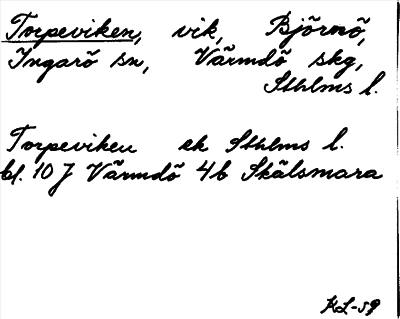 Torpeviken, vik, Björnö,
Ingarö sn, Värmdö skg,
Sthlms l.
Torpeviken ek Sthlms l.
bl. 10 J Värmdö 4b Skälsmara
KL-59